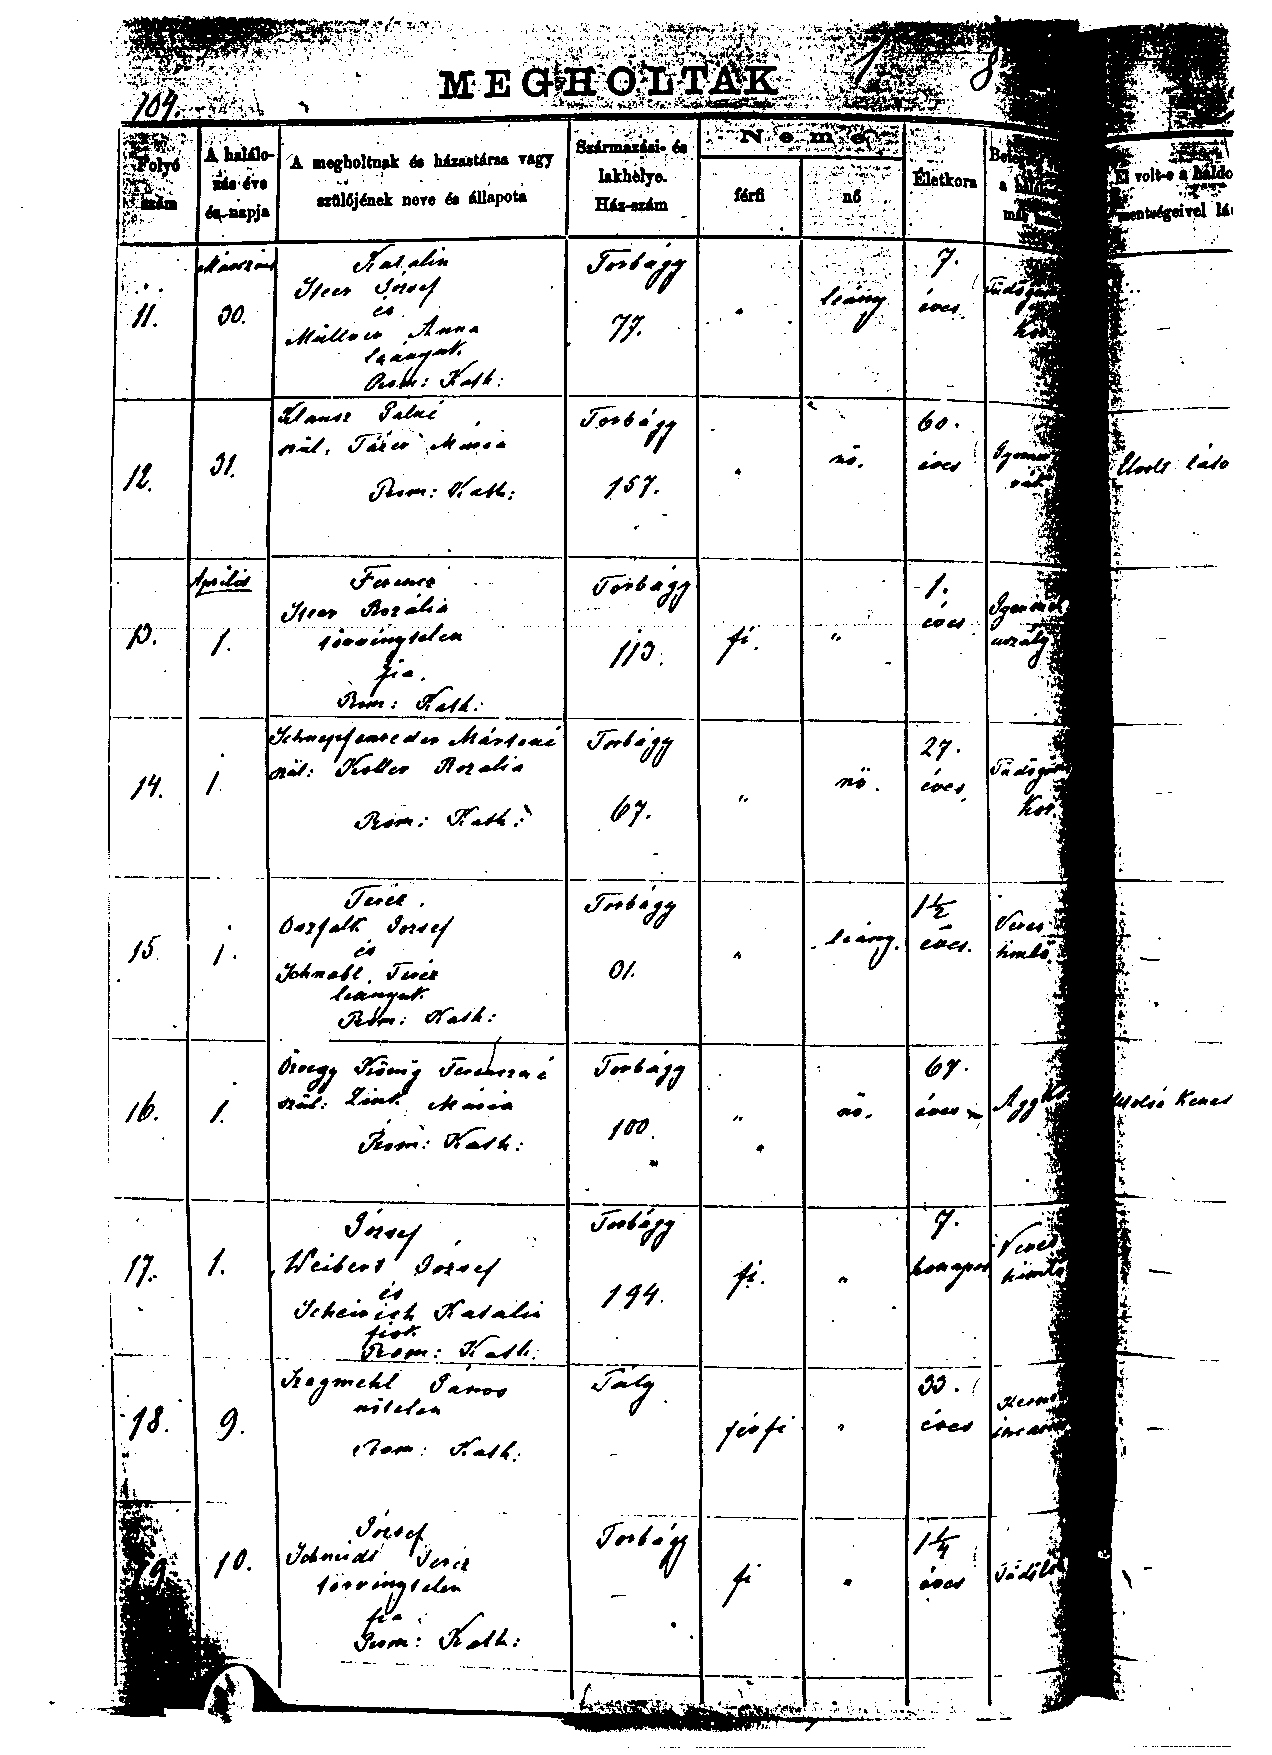 104.
MEGHOLTAK 1 8
Folyó szám
A halálozás éve és napja
A megholtnak és házastársa vagy szülőjének neve és állapota
Származási- és lakhelye. Ház-szám
Neme
férfi
nő
Életkora
El volt-e a háldo
mentségeivel lá
11. Márczius 30.
Katalin
Steer József
és
Müllner Anna
leányuk
Rom: Kath:
Torbágy
77.
leány
7.
éves
12. 31.
Klausz Pálné
szül. Mária
Rom: Kath:
Torbágy
157.
nő.
60.
éves
13. Április 1.
Ferencz
Steer Rozália
törvénytelen
fia.
Rom: Kath:
Torbágy
113.
fi. "
1.
éves
14. 1.
Schnepfenreder Mártonné
szül: Koller Rozalia
Rom: Kath:
Torbágy
67.
" nő.
27.
éves.
Kór.
15. 1.
Teréz
József
és
Schnabl Teréz
leányuk
Rom: Kath:
Torbágy
31.
" leány.
1½
éves.
Veres
himlő
—
16. 1.
Özvegy König Ferenczné
szül: Zink Mária
Rom: Kath:
Torbágy
100.
" nő.
67.
éves
17. 1.
József
Weibert József
és
Katalin
fiok
Rom: Kath:
Torbágy
194.
fi. "
7.
honapos
Veres
himlő
—
18. 9.
János
nőtelen
Rom: Kath:
Tály
—
férfi "
33.
éves
—
19. 10.
József
Schmidt Teréz
törvénytelen
fia
Rom: Kath:
Torbágy
—
fi "
1¼
éves